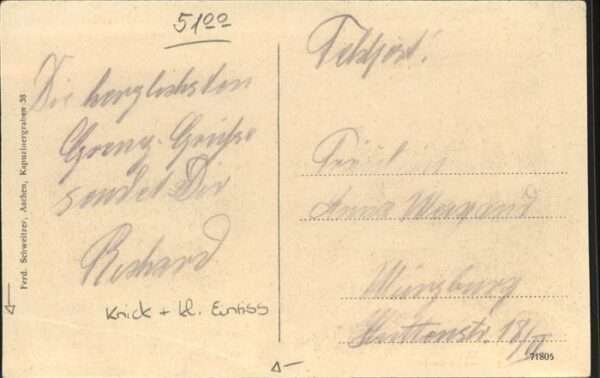 5100
Die herzlichsten
Grenz-Grüße
sendet Dir
Richard
Knick + kl. Einriss
Ferd. Schweitzer, Aachen, Kapuzinergraben 38
Feldpost!
Anna
Würzburg
Huttenstr. 18/II
71805